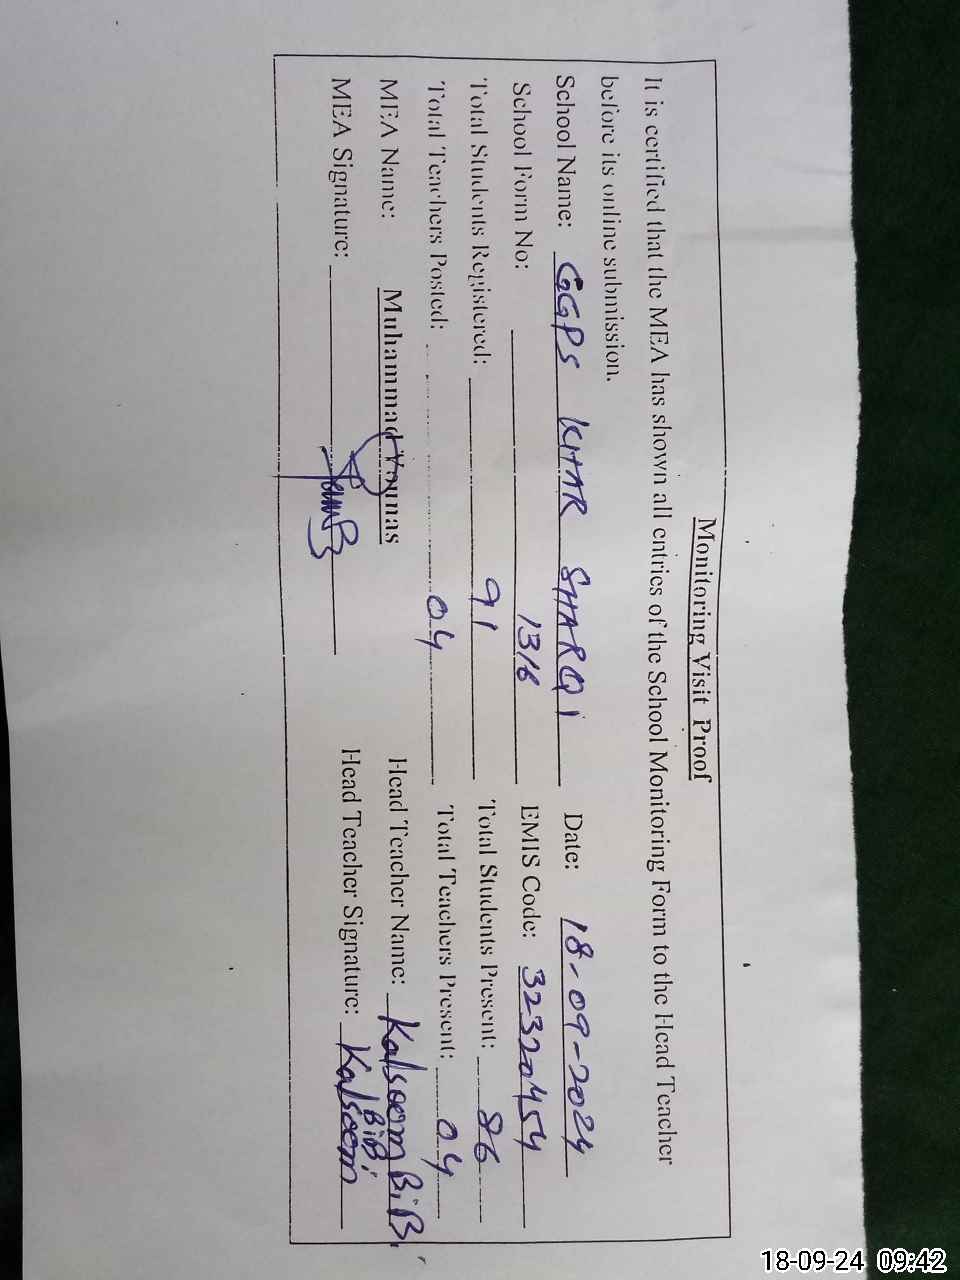 Monitoring Visit Proof
It is certified that the MEA has shown all entries of the School Monitoring Form to the Head Teacher
before its online submission.
School Name: GGPS KHAR SHARQI Date: 18-09-2024
School Form No: 1316 EMIS Code: 32320454
Total Students Registered: 91 Total Students Present: 86
Total Teachers Posted: 04 Total Teachers Present: 04
MEA Name: Muhammad Younas Head Teacher Name: Kalsoom BiBi
MEA Signature: Head Teacher Signature: Kalsoom BiBi
18-09-24 09:42